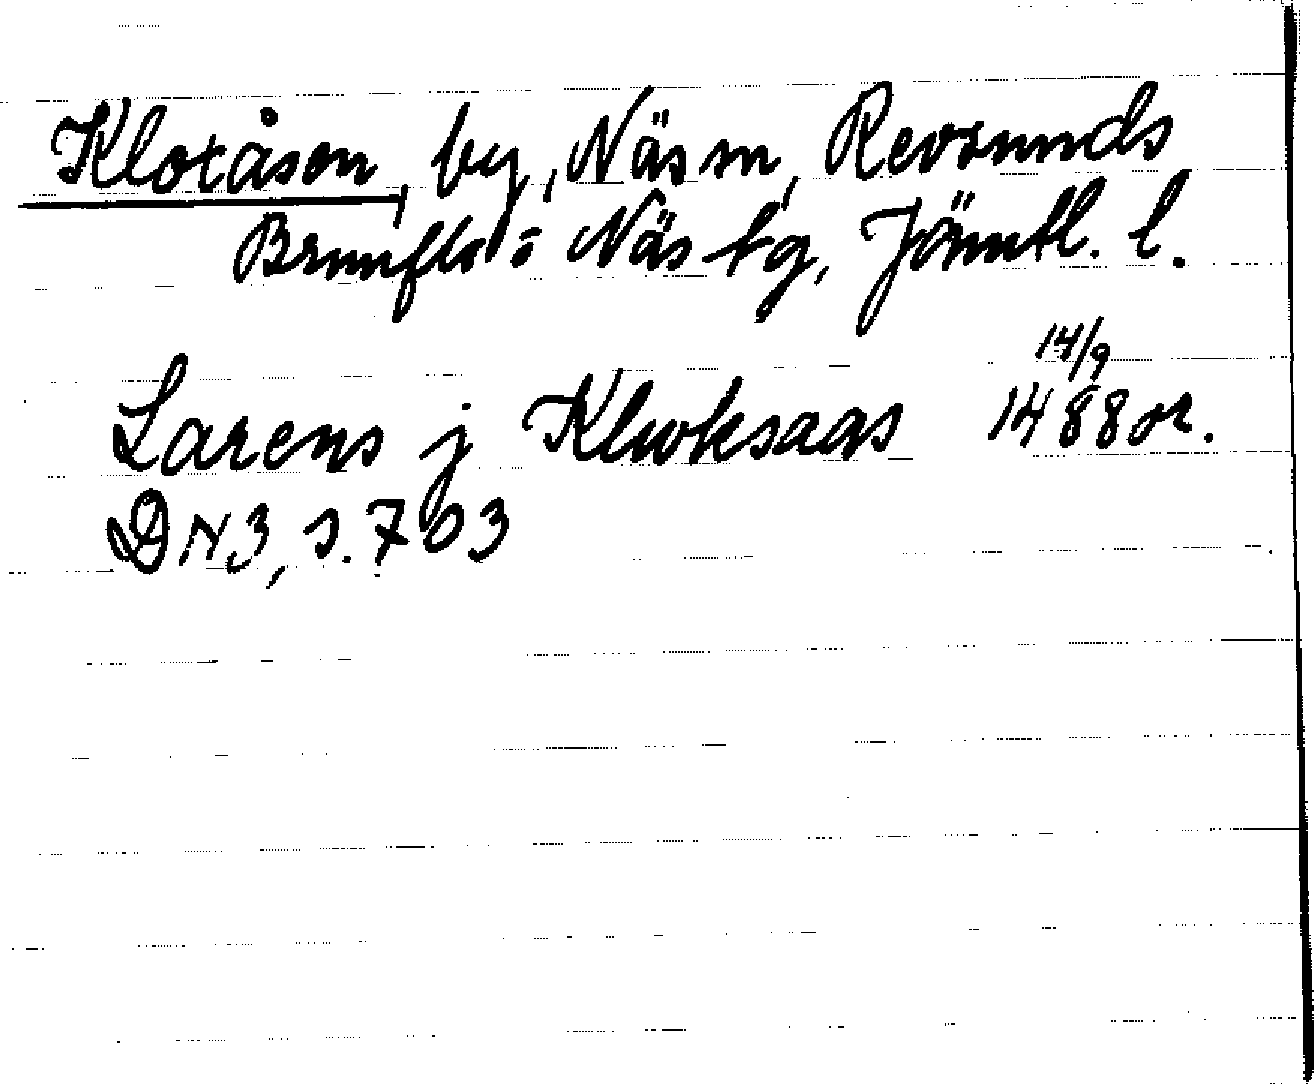 Kloxåsen, by, Näs sn, Revsunds
Brunflo o Näs tg, Jämtl. l.
14/9
Larens j Klwksaas 1488 or.
DN 3, s. 703